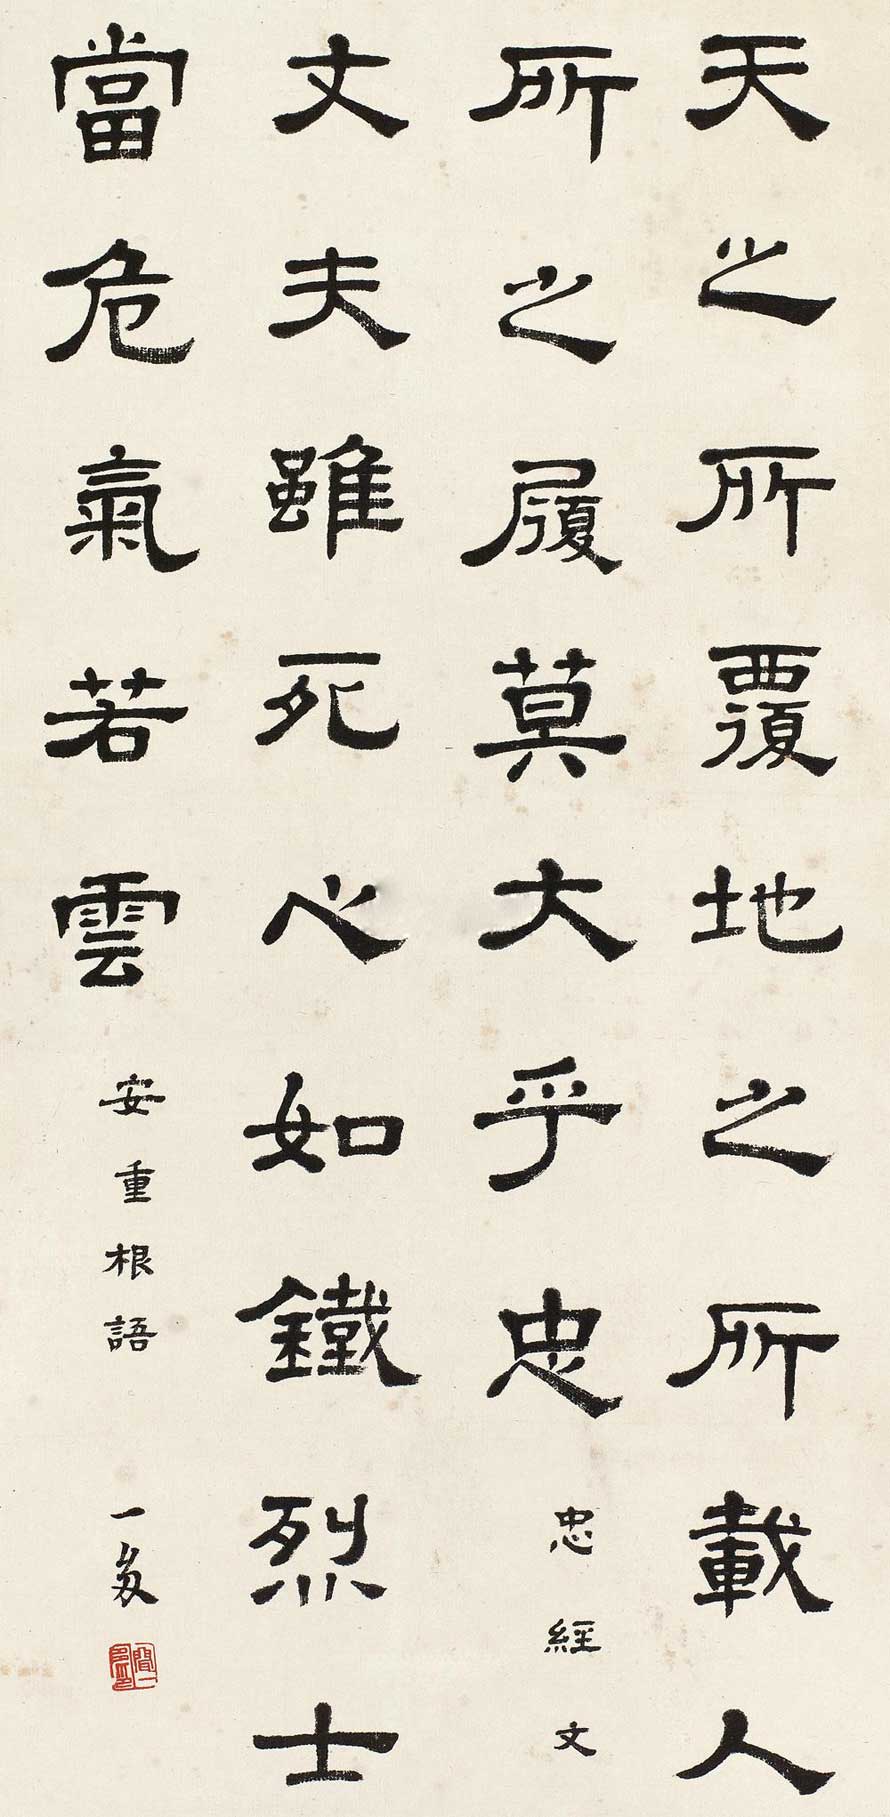 天之所覆地之所載人
所之履莫大乎忠 忠經文
丈夫雖死心如鐵烈士
當危氣若雲 安重根語 一